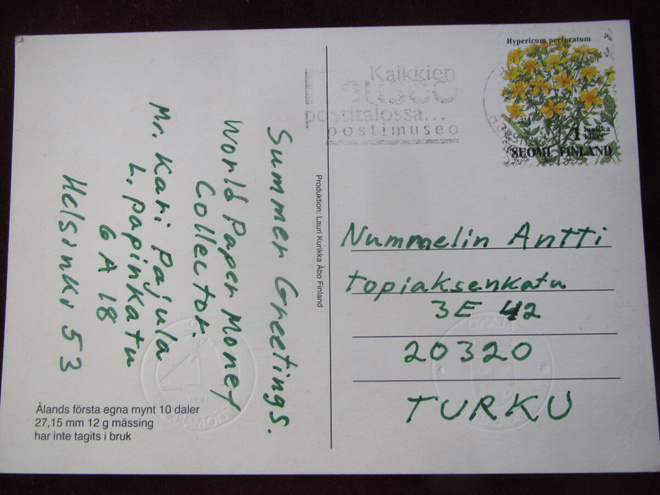 Summer Greetings.
World Paper Money
Collector.
Mr. Kari Pajula
L. papinkatu
6 A 18
Helsinki 53
Ålands första egna mynt 10 daler
27,15 mm 12 g mässing
har inte tagits i bruk
Produktion: Lauri Kurikka Åbo Finland
Kaikkien
museo
postitalossa...
postimuseo
Hypericum perforatum
1
SUOMI FINLAND
Nummelin Antti
topiaksenkatu
3E 42
20320
TURKU